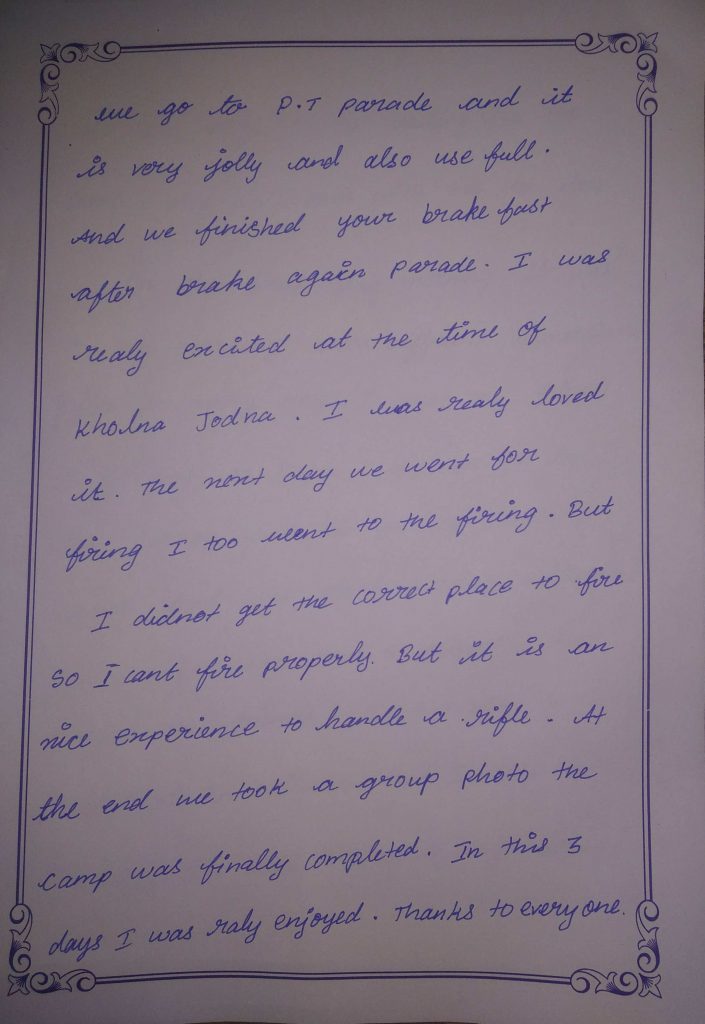 we go to P.T parade and it
is very jolly and also use full.
And we finished your brake fast
after brake again parade. I was
realy excited at the time of
Kholna Jodna. I was realy loved
it. The next day we went for
firing I too went to the firing. But
I didnot get the correct place to fire
So I cant fire properly. But it is an
nice experience to handle a rifle. At
the end we took a group photo the
camp was finally completed. In this 3
days I was raly enjoyed. Thanks to every one.